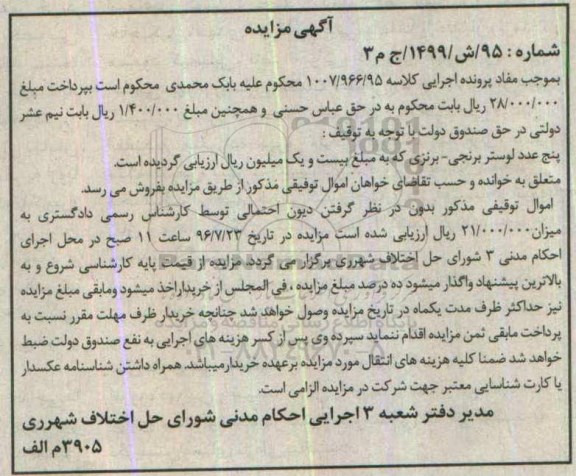 آگهی مزایده
شماره : ۹۵/ش/۱۴۹۹/ج م۳
بموجب مفاد پرونده اجرایی کلاسه ۱۰۰۷/۹۶۶/۹۵ محکوم علیه بابک محمدی محکوم است بپرداخت مبلغ
۲۸/۰۰۰/۰۰۰ ریال بابت محکوم به در حق عباس حسنی و همچنین مبلغ ۱/۴۰۰/۰۰۰ ریال بابت نیم عشر
دولتی در حق صندوق دولت با توجه به توقیف :
پنج عدد لوستر برنجی- برنزی که به مبلغ بیست و یک میلیون ریال ارزیابی گردیده است.
متعلق به خوانده و حسب تقاضای خواهان اموال توقیفی مذکور از طریق مزایده بفروش می رسد.
اموال توقیفی مذکور بدون در نظر گرفتن دیون احتمالی توسط کارشناس رسمی دادگستری به
میزان۲۱/۰۰۰/۰۰۰ ریال ارزیابی شده است مزایده در تاریخ ۹۶/۷/۲۳ ساعت ۱۱ صبح در محل اجرای
احکام مدنی ۳ شورای حل اختلاف شهرری برگزار می گردد مزایده از قیمت پایه کارشناسی شروع و به
بالاترین پیشنهاد واگذار میشود ده درصد مبلغ مزایده ، فی المجلس از خریداراخذ میشود ومابقی مبلغ مزایده
نیز حداکثر ظرف مدت یکماه در تاریخ مزایده وصول خواهد شد چنانچه خریدار ظرف مهلت مقرر نسبت به
پرداخت مابقی ثمن مزایده اقدام ننماید سپرده وی پس از کسر هزینه های اجرایی به نفع صندوق دولت ضبط
خواهد شد ضمنا کلیه هزینه های انتقال مورد مزایده برعهده خریدارمیباشد. همراه داشتن شناسنامه عکسدار
یا کارت شناسایی معتبر جهت شرکت در مزایده الزامی است.
مدیر دفتر شعبه ۳ اجرایی احکام مدنی شورای حل اختلاف شهرری
۳۹۰۵م الف